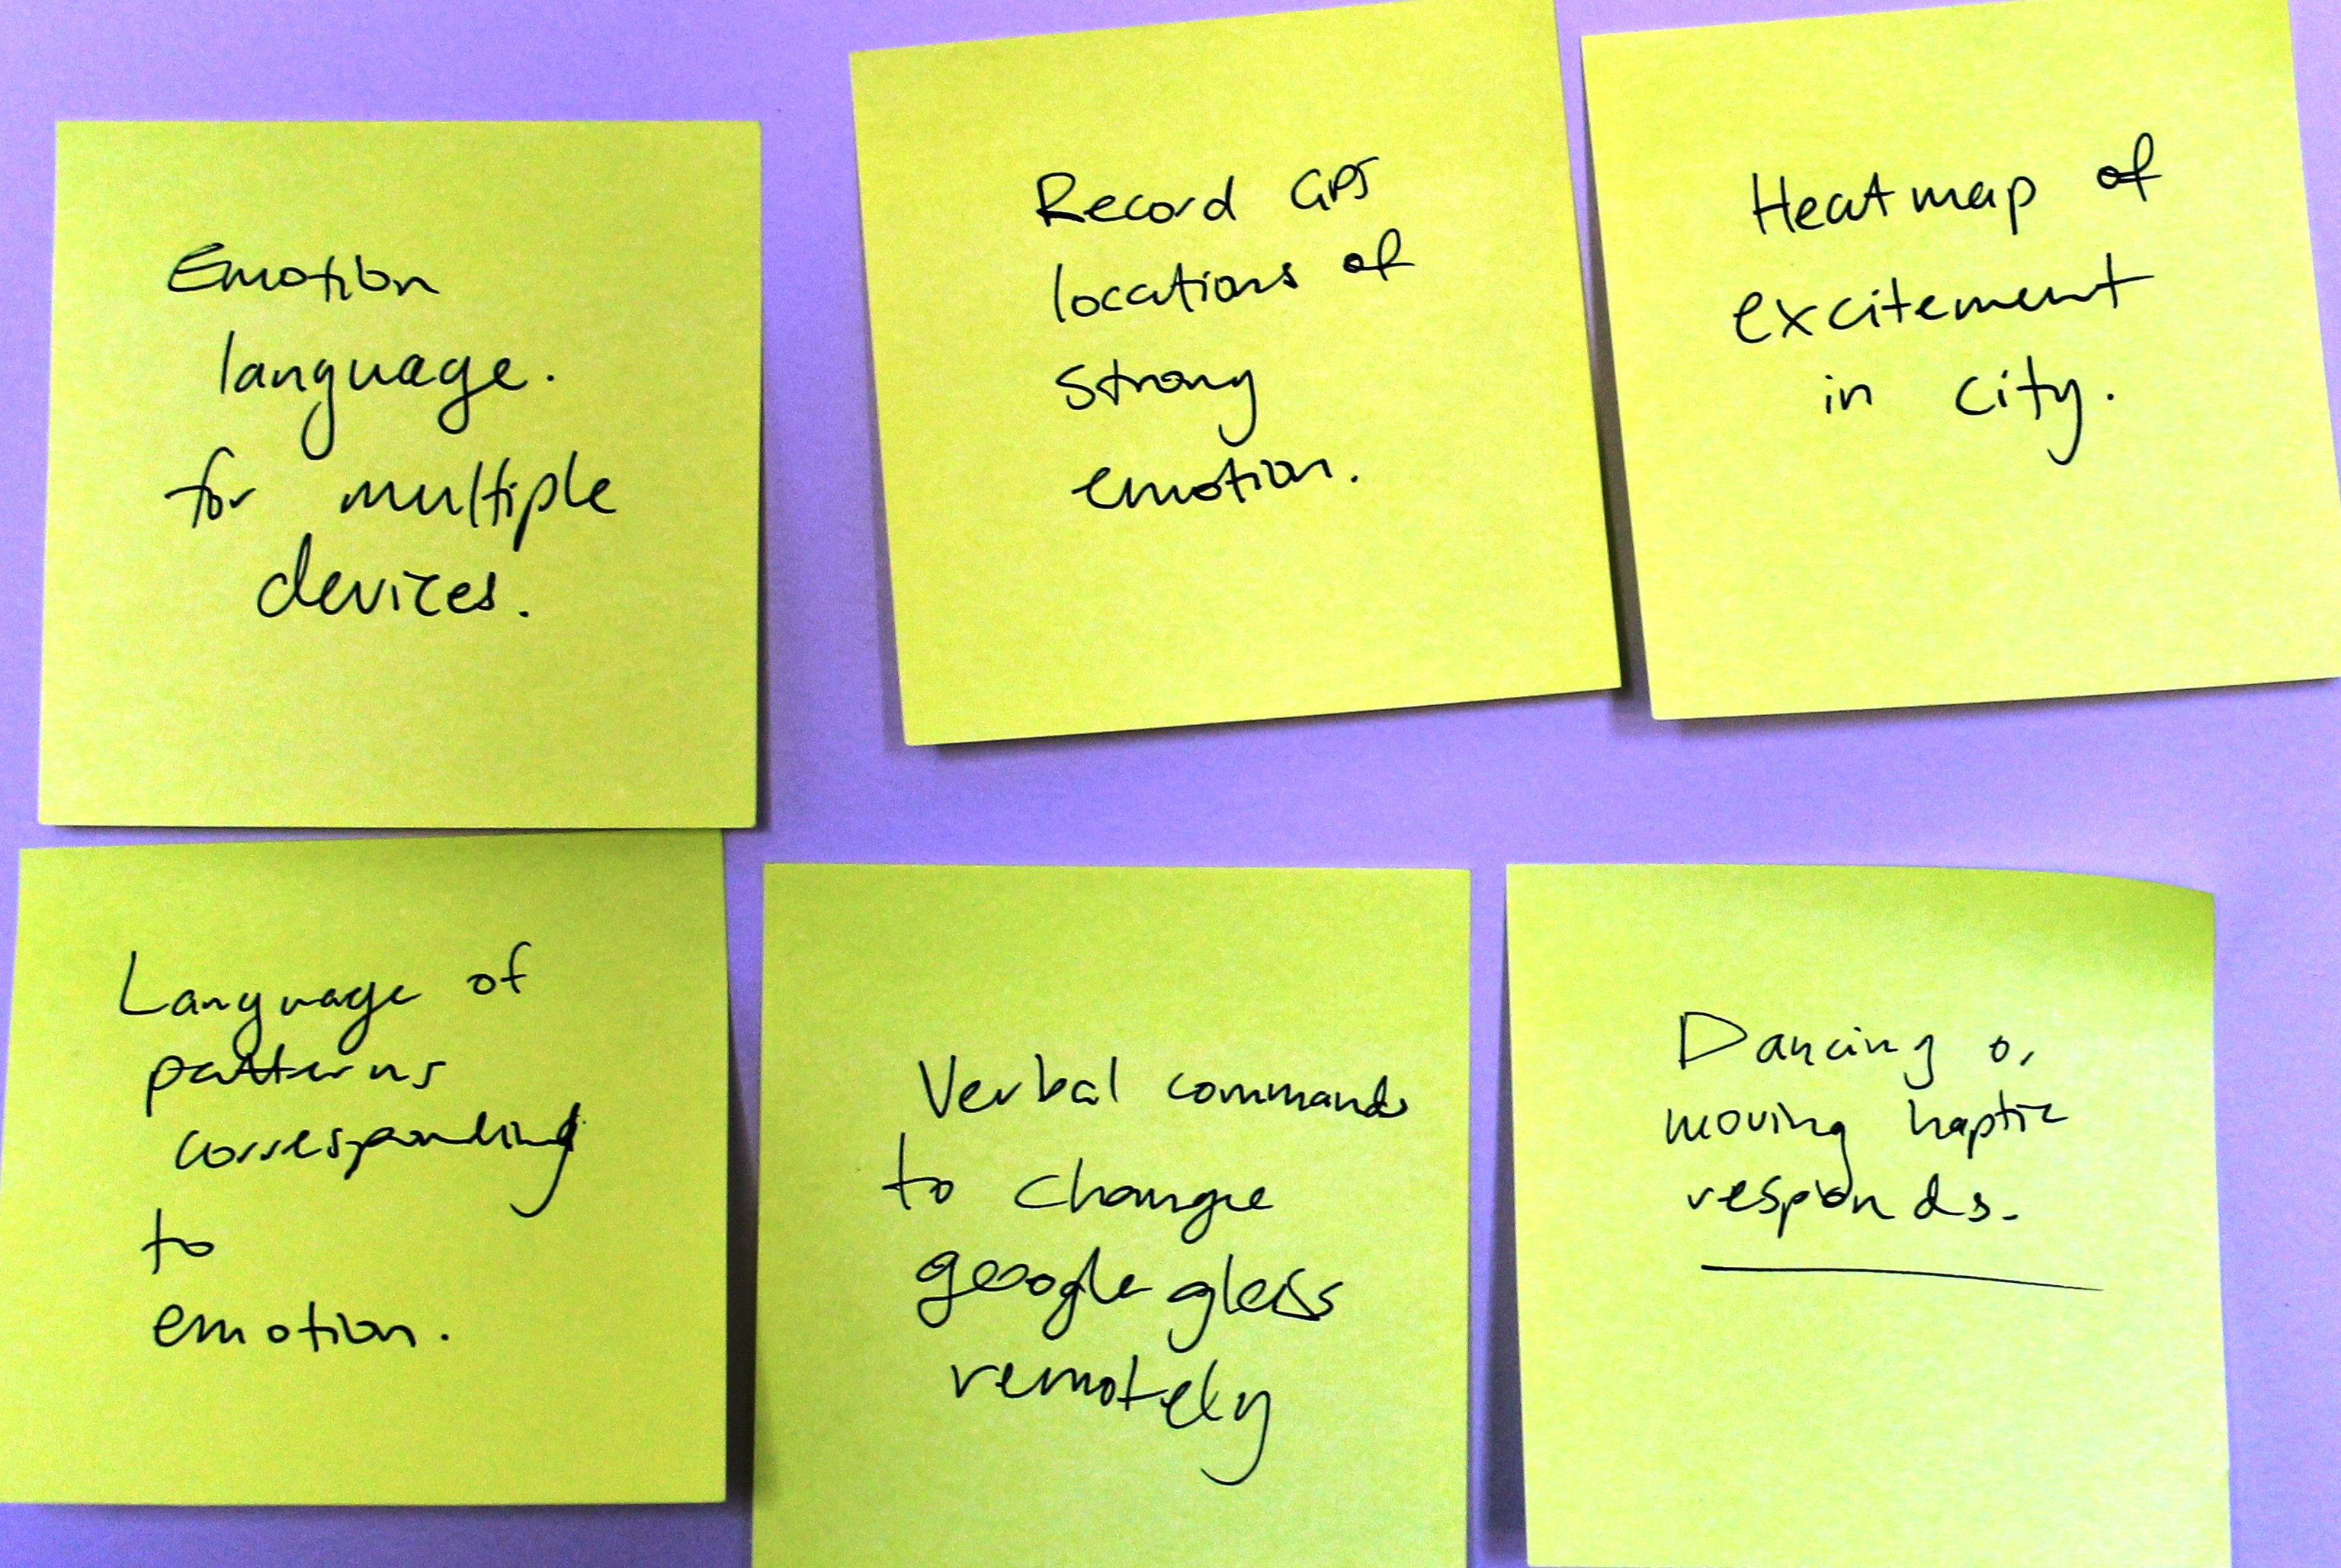 Emotion
language.
for multiple
devices.
Record GPS
locations of
strong
emotion.
Heatmap of
excitement
in city.
Language of
patterns
corresponding
to
emotion.
Verbal commands
to change
google glass
remotely
Dancing or
moving haptic
responds.